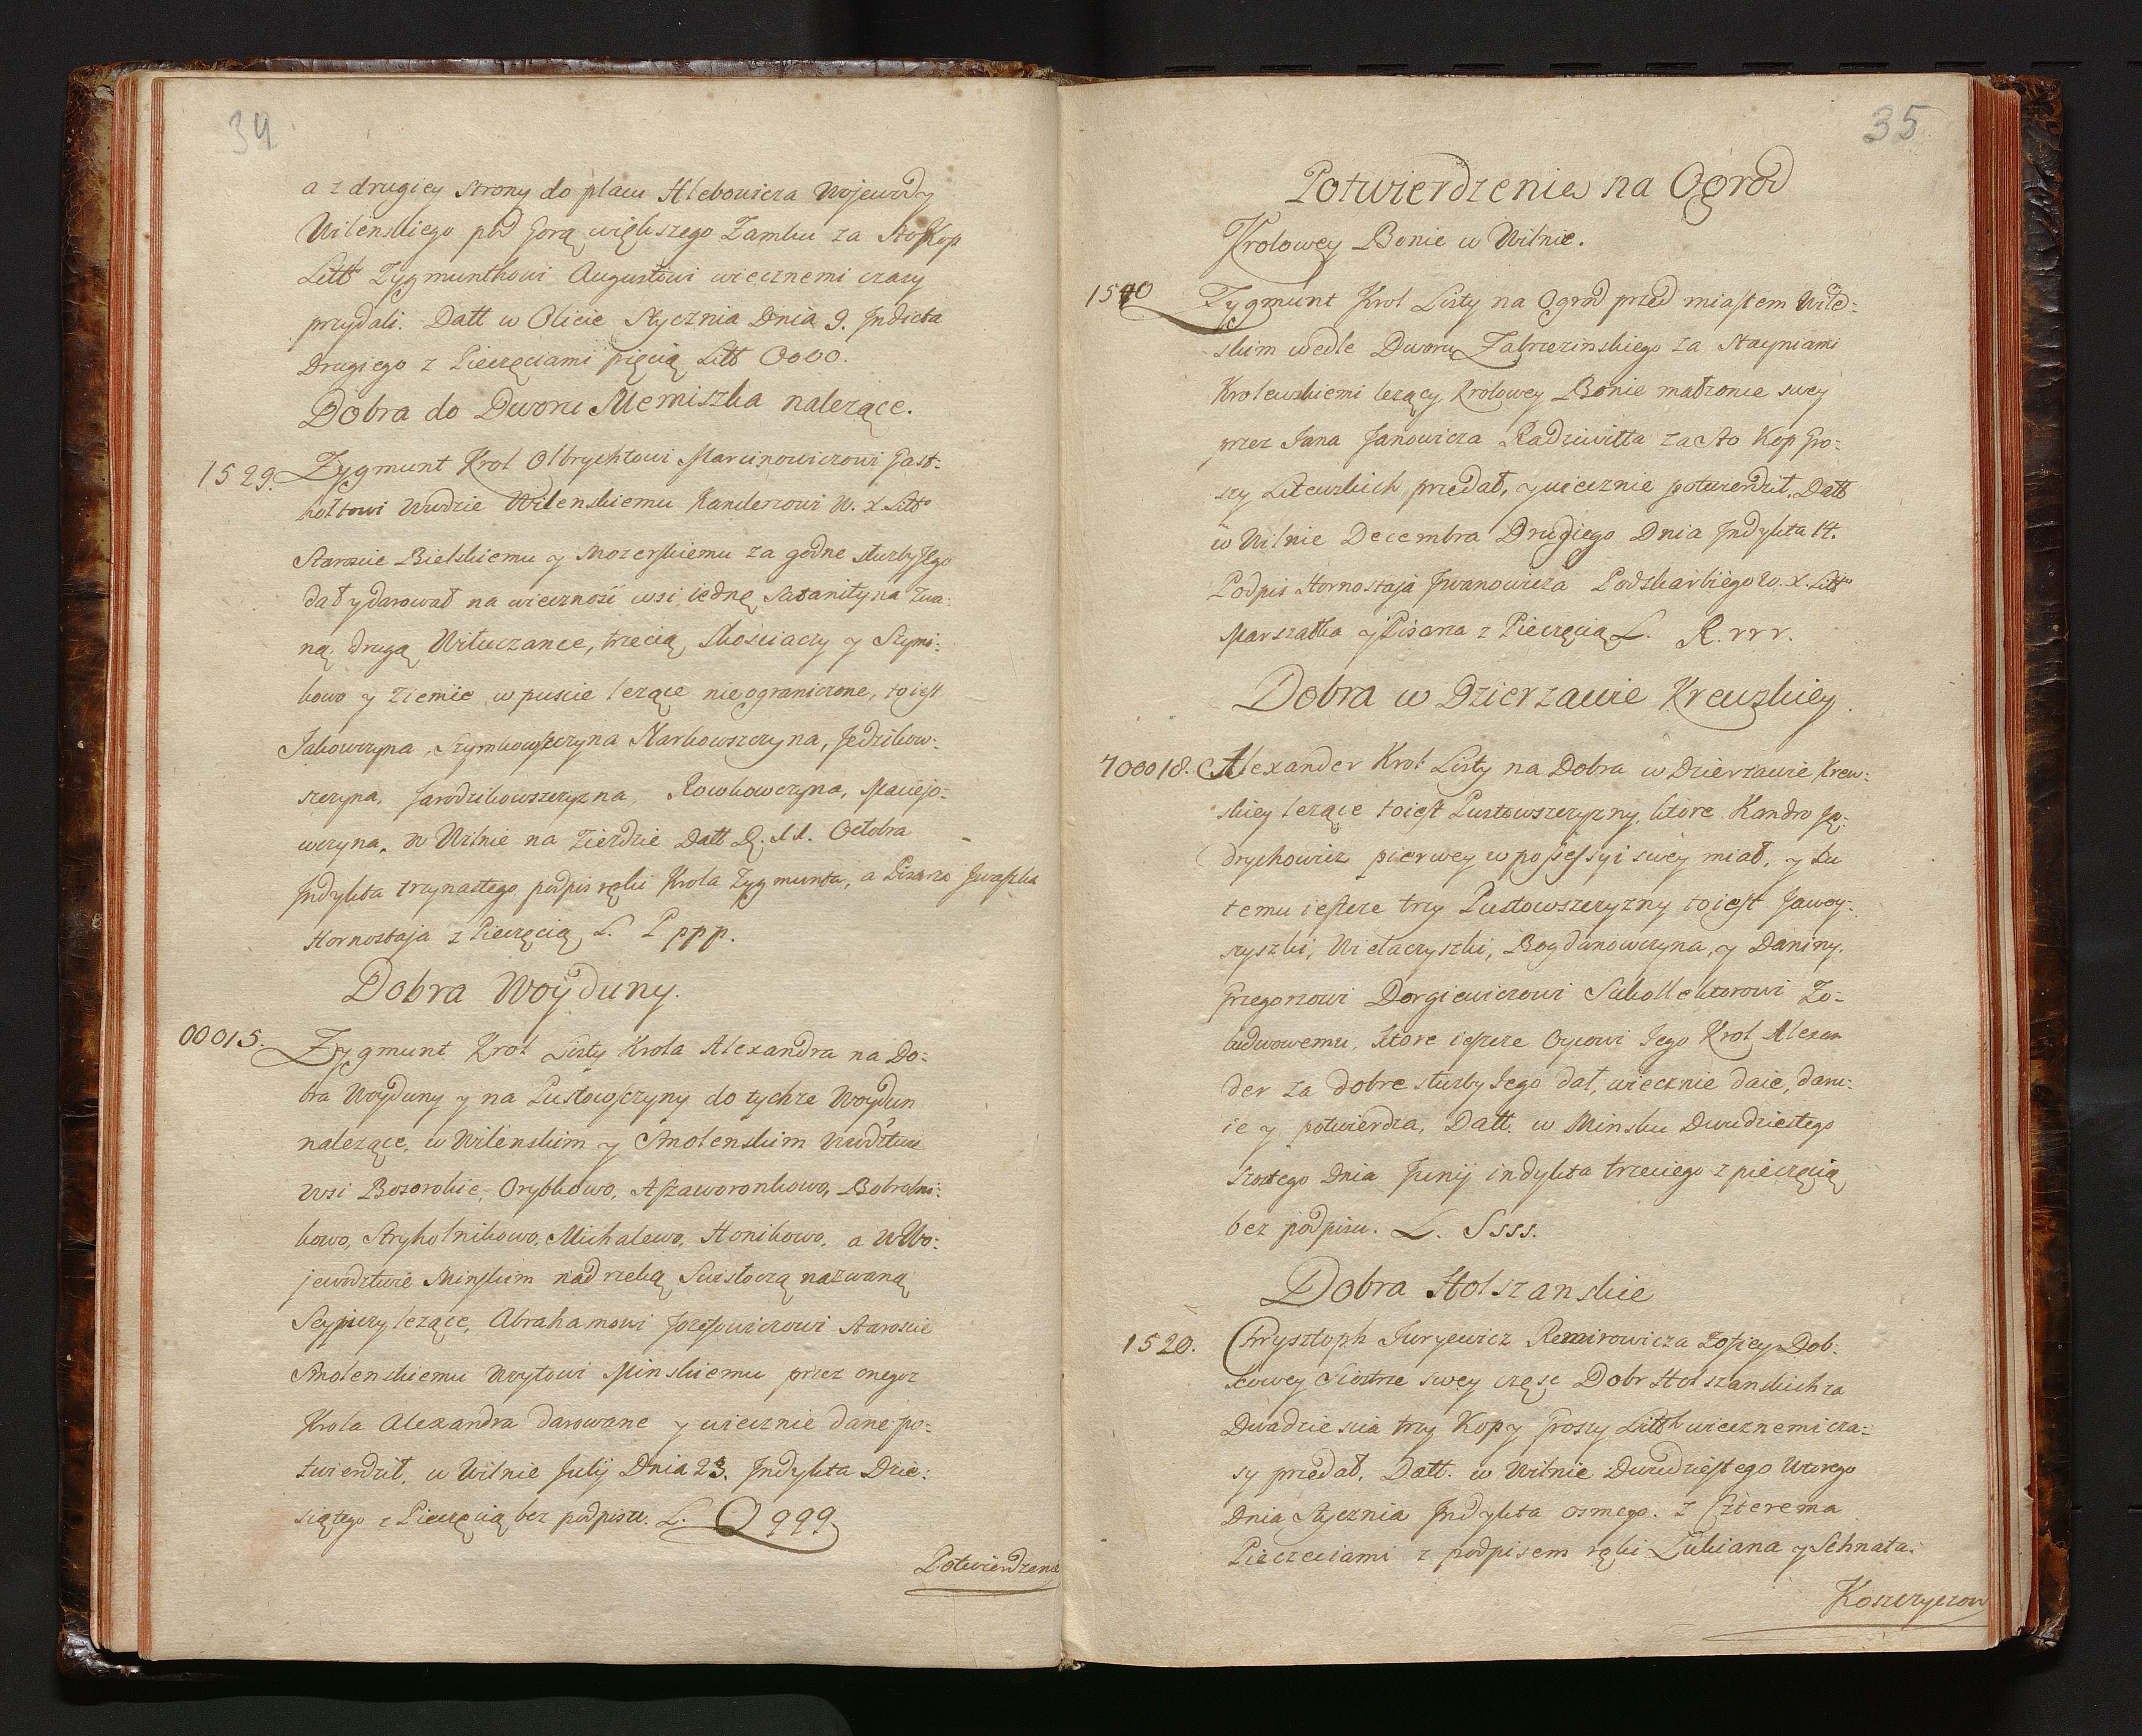 34
a z drugiey strony do placu Hlebowicza Wojewody
Wilenskiego pod Gorą większego Zamku za Sto Kop
Litt Zygmunthowi Augustowi wiecznemi czasy
przydali. Datt w Olicie Stycznia Dnia 9. Indicta
Drugiego z Pieczęciami pięcią Litt Oooo.
Dobra do Dworu Memiszka nalezące.
1529. Zygmunt Krol Olbrychtowi Marcinowiczowi Gast-
holtowi Wwdzie Wilenskiemu Kanclerzowi W. X. Litto
Staroscie Bielskiemu y Mozerskiemu za godne służby Jego
dał y darował na wieczność wsi, iednę zwa-
ną, drugą Wituczance, trzecią, Skosciaczy y Szymi-
kowo y Ziemie w puscie lezące nieograniczone, to iest
Jakowczyna, Szymkowszczyna Narkowszczyna, Jedzikow-
szczyna, Jarodzikowszczyzna, Rowkowczyna, Maciejo-
wczyna, w Wilnie na Zieździe Datt D. 11. Octobra
Indykta trzynastego podpis ręki Krola Zygmunta, a Pisarza Iwaszka
Hornostaja z Pieczęcią L. Pppp.
Dobra Woyduny.
00015. Zygmunt Krol Listy Krola Alexandra na Do-
bra Woyduny y na Pustowszczyny do tychze Woydun
nalezące, w Wilenskim y Smolenskim Wwdztwie
wsi Bosorokie, Orybkowo, Aszaworonkowo, Bobrolni-
kowo, Stryholnikowo, Michalewo, Honikowo, a w Wo-
jewodztwie Minskim nad rzeką Swisłoczą nazwaną
lezące, Abrahamowi Jozefowiczowi Staroscie
Smolenskiemu Woytowi Minskiemu przez onegoz
Krola Alexandra darowane y wiecznie dane po-
twierdził, w Wilnie Julij Dnia 23. Indykta Dzie-
siątego z Pieczęcią bez podpisu. L. Qqqq
Potwierdzenie
35
Potwierdzenie na Ogrod
Krolowey Bonie w Wilnie.
1540 Zygmunt Krol Listy na Ogrod przed miastem Wile-
skim wedle Dworu Zabrzezinskiego za Stayniami
Krolewskiemi lezący Krolowey Bonie małzonce swey
przez Jana Janowicza Radziwiłła za Sto Kop Gro-
szy Litewskich przedał, y wiecznie potwierdził. Datt
w Wilnie Decembra Drugiego Dnia Indykta 14.
Podpis Hornostaja Iwanowicza Podskarbiego W. X. Litto
Marszałka y Pisarza z Pieczęcią L. R.rrr.
Dobra w Dzierzawie Krewskiey.
700018. Alexander Krol Listy na Dobra w Dzierzawie Krew-
skiey lezące to iest Pustowszczyzny, ktore Kandro Ję-
drychowicz pierwey w possessyi swey miał, y ku
temu ieszcze trzy Pustowszczyzny to iest Jawoy-
szyszki, Wielaczyszki, Bogdanowczyna, y Daniny.
Grzegorzowi Dorgiewiczowi Sukollektorowi Zo-
ludwowemu, ktore ieszcze Oycowi Jego Krol Alexan
der za dobre służby Jego dał, wiecznie daie, daru-
ie y potwierdza, Datt. w Minsku Dwudziestego
szostego Dnia Junij indykta trzeciego z pieczęcią
bez podpisu. L. Ssss.
Dobra Holszanskie
1520. Chrysztoph Juryewicz Remirowicza Zofiey Dob-
Siostrze swey częsc Dobr Holszanskich za
Dwadziescia trzy Kopy Groszy Litth wiecznemi cza-
sy przedał, Datt. w Wilnie Dwudziestego Wtorego
Dnia Stycznia Indykta osmego. z Czterema
Pieczeciami z podpisem ręki Lukiana y Sehnata.
Koszczyczow